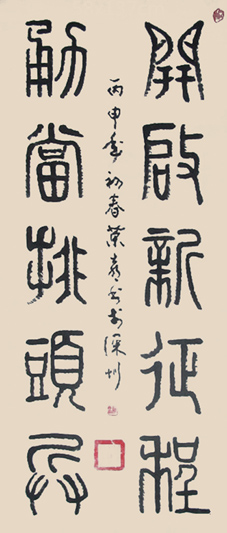 開啟新征程
勇當排頭兵
丙申年初春榮書於深圳